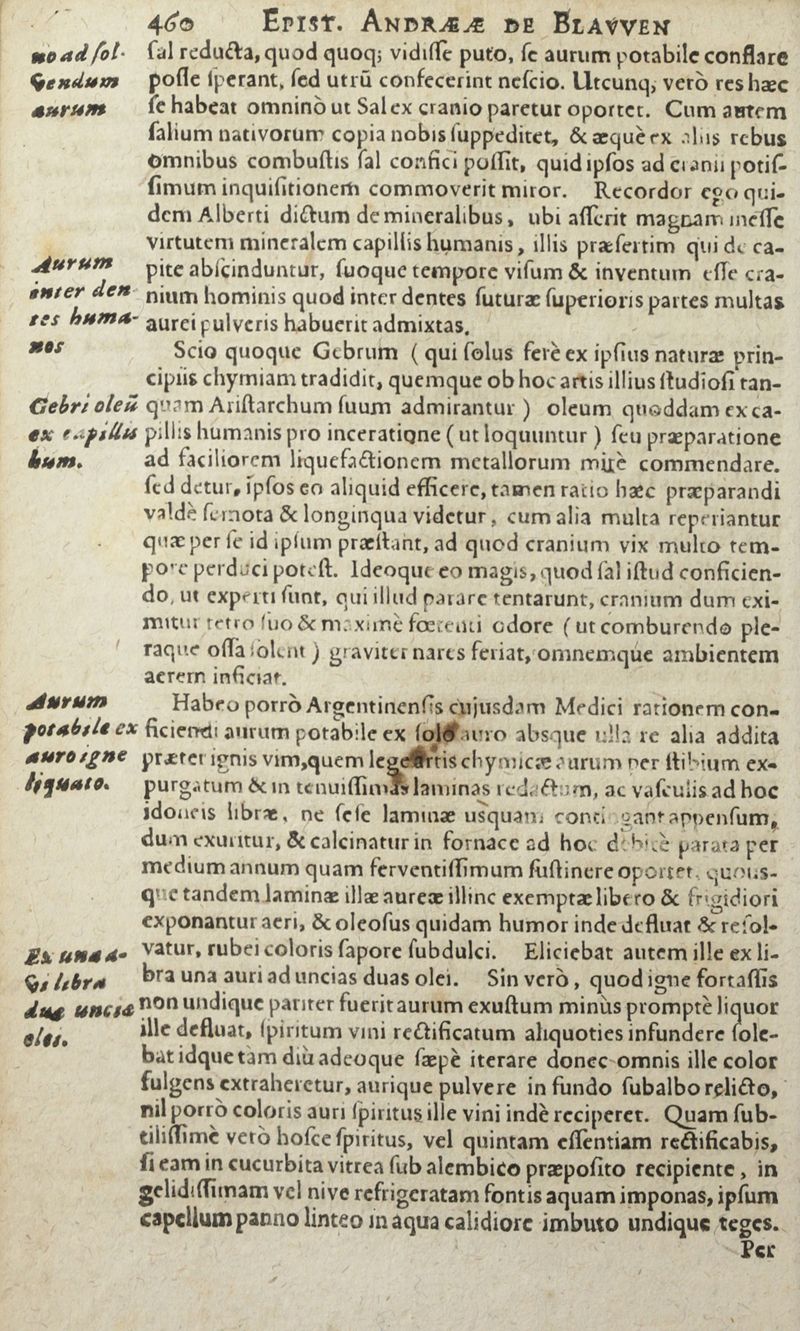 460 EPIST. ANDREÆ DE BLAVVEN
no ad ſol-
vendum
aurum
ſal reducta, quod quoq; vidiſſe puto, ſc aurum potabile conflare
poſſe ſperant, ſed utrū confecerint neſcio. Utcunq; verò res hæc
ſe habeat omninò ut Sal ex cranio paretur oportet. Cum autem
ſalium nativorum copia nobis ſuppeditet, & æquè ex aliis rebus
omnibus combuſtis ſal confici poſſit, quid ipſos ad cranii potiſ-
ſimum inquiſitionem commoverit miror. Recordor ego qui-
dem Alberti dictum de mineralibus, ubi aſſerit magnam ineſſe
virtutem mineralem capillis humanis, illis præſertim qui de ca-
Aurum
inter den
tes huma-
nos
pite abſcinduntur, ſuoque tempore viſum & inventum eſſe cra-
nium hominis quod inter dentes ſuturæ ſuperioris partes multas
aurei pulveris habuerit admixtas.
Scio quoque Gebrum (qui ſolus ferè ex ipſius naturæ prin-
cipiis chymiam tradidit, quemque ob hoc artis illius ſtudioſi tan-
Gebri oleū
ex capillis
hum.
quam Ariſtarchum ſuum admirantur) oleum quoddam ex ca-
pillis humanis pro inceratione (ut loquuntur) ſeu præparatione
ad faciliorem liquefactionem metallorum mirè commendare.
ſed detur, ipſos eo aliquid efficere, tamen ratio hæc præparandi
valdè ſemota & longinqua videtur, cum alia multa reperiantur
quæ per ſe id ipſum præſtant, ad quod cranium vix multo tem-
pore perduci poteſt. Ideoque eo magis, quod ſal iſtud conficien-
do, ut experti ſunt, qui illud parare tentarunt, cranium dum exi-
mitur tetro ſuo & maximè fœtenti odore (ut comburendo ple-
raque oſſa ſolent) graviter nares feriat, omnemque ambientem
aerem inficiat.
Aurum
potabile ex
auro igne
liquato.
Habeo porrò Argentinenſis cujusdam Medici rationem con-
ficiendi aurum potabile ex ſolo auro absque ulla re alia addita
præter ignis vim, quem lege artis chymicæ aurum per ſtibium ex-
purgatum & in tenuiſſimas laminas redactum, ac vaſculis ad hoc
idoneis libræ, ne ſeſe laminæ usquam contingant appenſum,
dum exuritur, & calcinatur in fornace ad hoc debitè parata per
medium annum quam ferventiſſimum ſuſtinere oportet, quous-
que tandem laminæ illæ aureæ illinc exemptæ libero & frigidiori
exponantur aeri, & oleoſus quidam humor inde defluat & reſol-
Ex una a-
vri libra
duæ unciæ
olei.
vatur, rubei coloris ſapore ſubdulci. Eliciebat autem ille ex li-
bra una auri ad uncias duas olei. Sin verò, quod igne fortaſſis
non undique pariter fuerit aurum exuſtum minùs promptè liquor
ille defluat, ſpiritum vini rectificatum aliquoties infundere ſole-
bat idque tàm diù adeoque ſæpè iterare donec omnis ille color
fulgens extraheretur, aurique pulvere in fundo ſubalbo relicto,
nil porrò coloris auri ſpiritus ille vini indè reciperet. Quam ſub-
tiliſſimè verò hoſce ſpiritus, vel quintam eſſentiam rectificabis,
ſi eam in cucurbita vitrea ſub alembico præpoſito recipiente, in
gelidiſſimam vel nive refrigeratam fontis aquam imponas, ipſum
capellum panno linteo in aqua calidiore imbuto undique teges.
Per